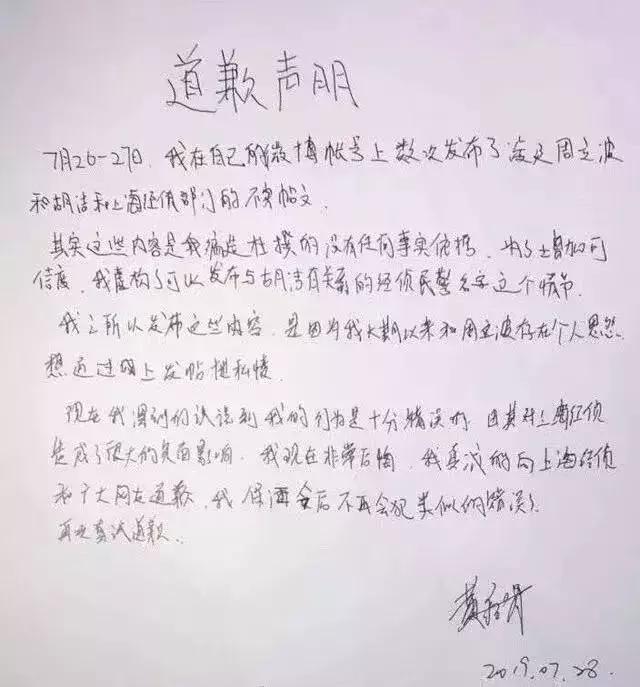 道歉声明
7月26-27日,我在自己的微博帐号上数次发布了涉及周立波
和胡洁和上海经侦部门的不实帖文.
其实这些内容是我编造杜撰的没有任何事实依据,为了增加可
信度,我虚构了可以发布与胡洁有关系的经侦民警名字这个情节.
我之所以发布这些内容,是因为我长期以来和周立波存在个人恩怨.
想通过网上发帖泄私愤.
现在我深刻的认识到我的行为是十分错误的,因其对上海经侦
造成了很大的负面影响.我现在非常后悔,我真诚的向上海经侦
和广大网友道歉,我保证今后不再会犯类似的错误.
再次真诚道歉.
2019.07.28.